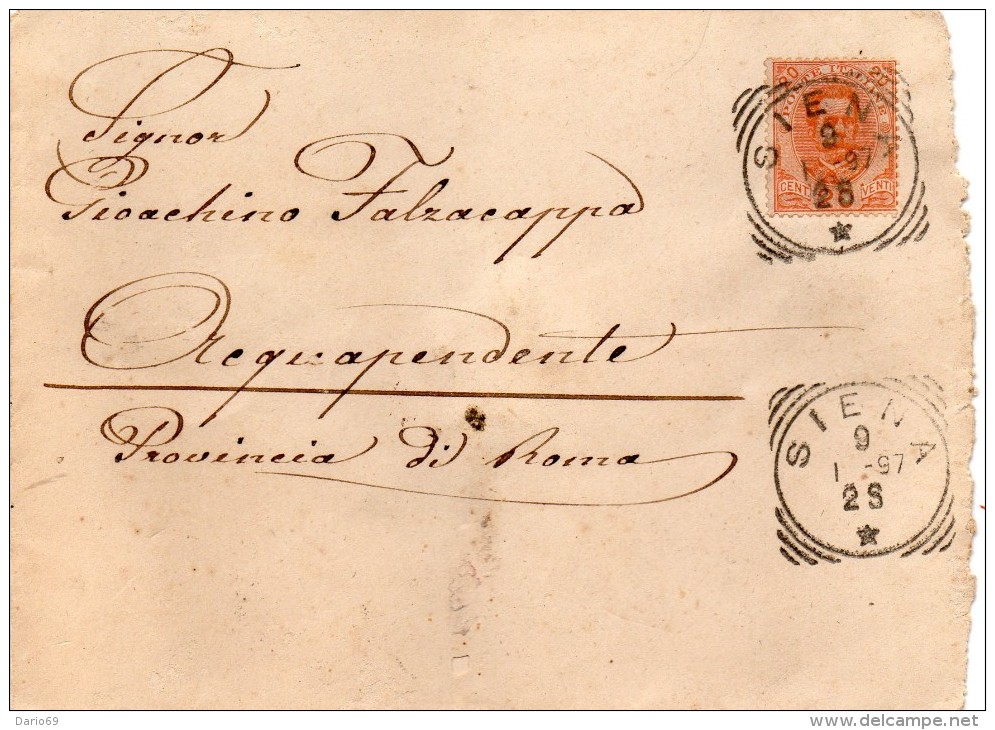 20 POSTE ITALIANE 20
CENT VENTI
SIENA
9
1 -97
2S
Signor
Gioachino Falzacappa
Acquapendente
Provincia di Roma
SIENA
9
1 -97
2S
Dario69
delcampe.net